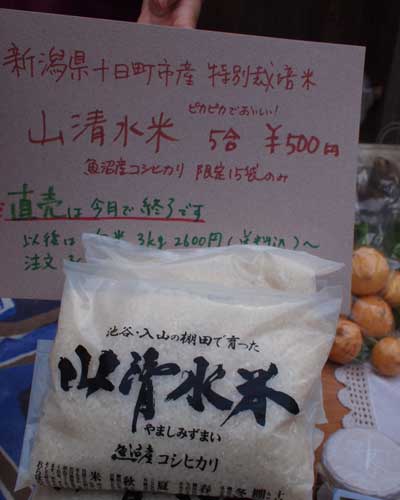 新潟県十日町市産 特別栽培米
ピカピカでおいしい!
山清水米 5合 ¥500円
魚沼産コシヒカリ 限定15袋のみ
直売は今日で終了です
以後は 米 3kg 2600円(送料込)~
注文
池谷・入山の棚田で育った
山清水米
やましみずまい
魚沼産コシヒカリ